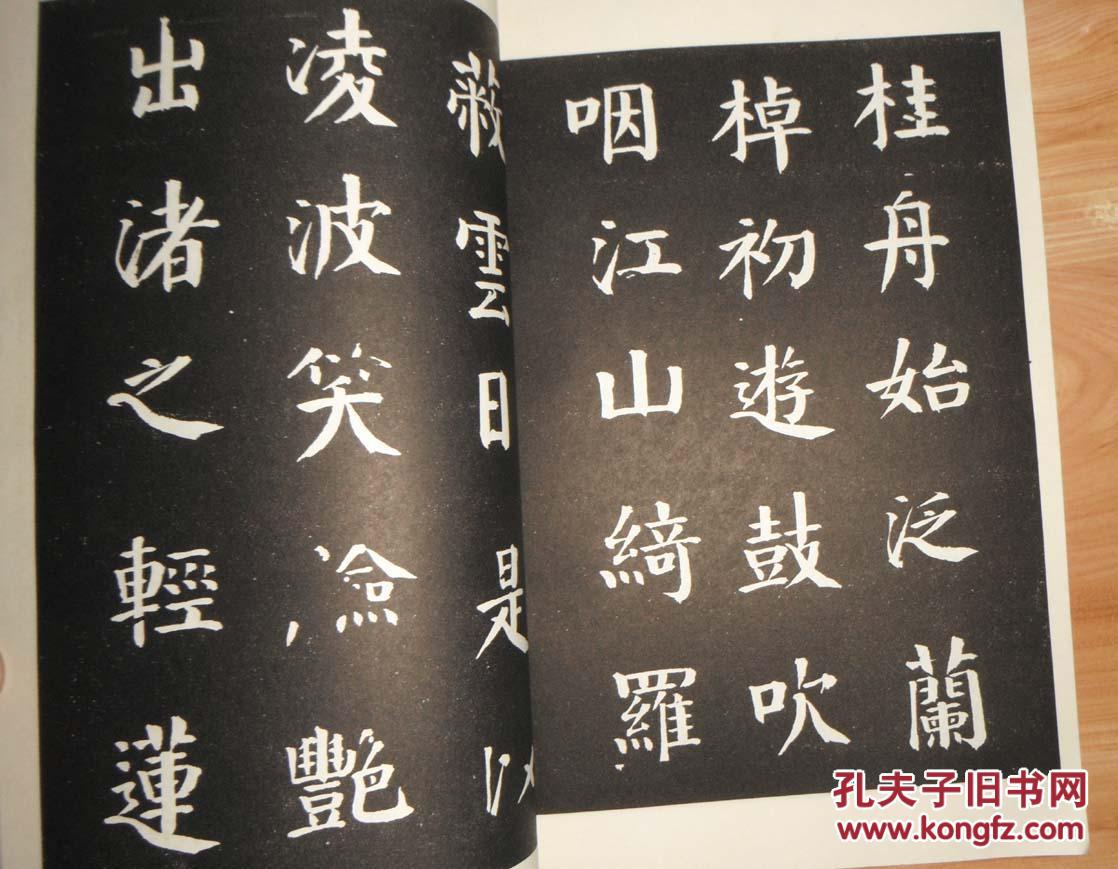 桂舟始泛蘭
棹初遊鼓吹
咽江山綺羅
蔽雲日是以
凌波笑艷
出渚之輕蓮
孔夫子旧书网
www.kongfz.com